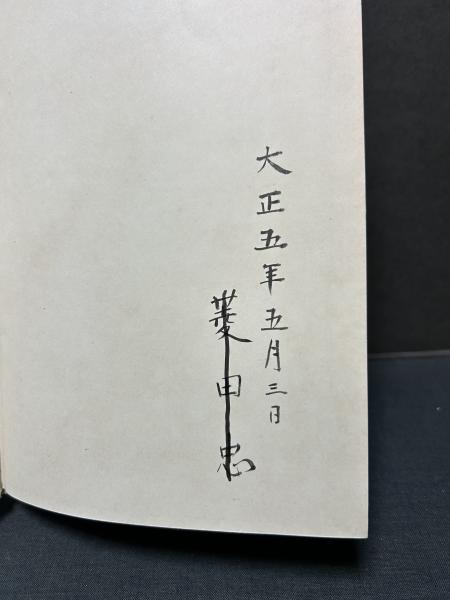 大正五年五月三日
菱田忠